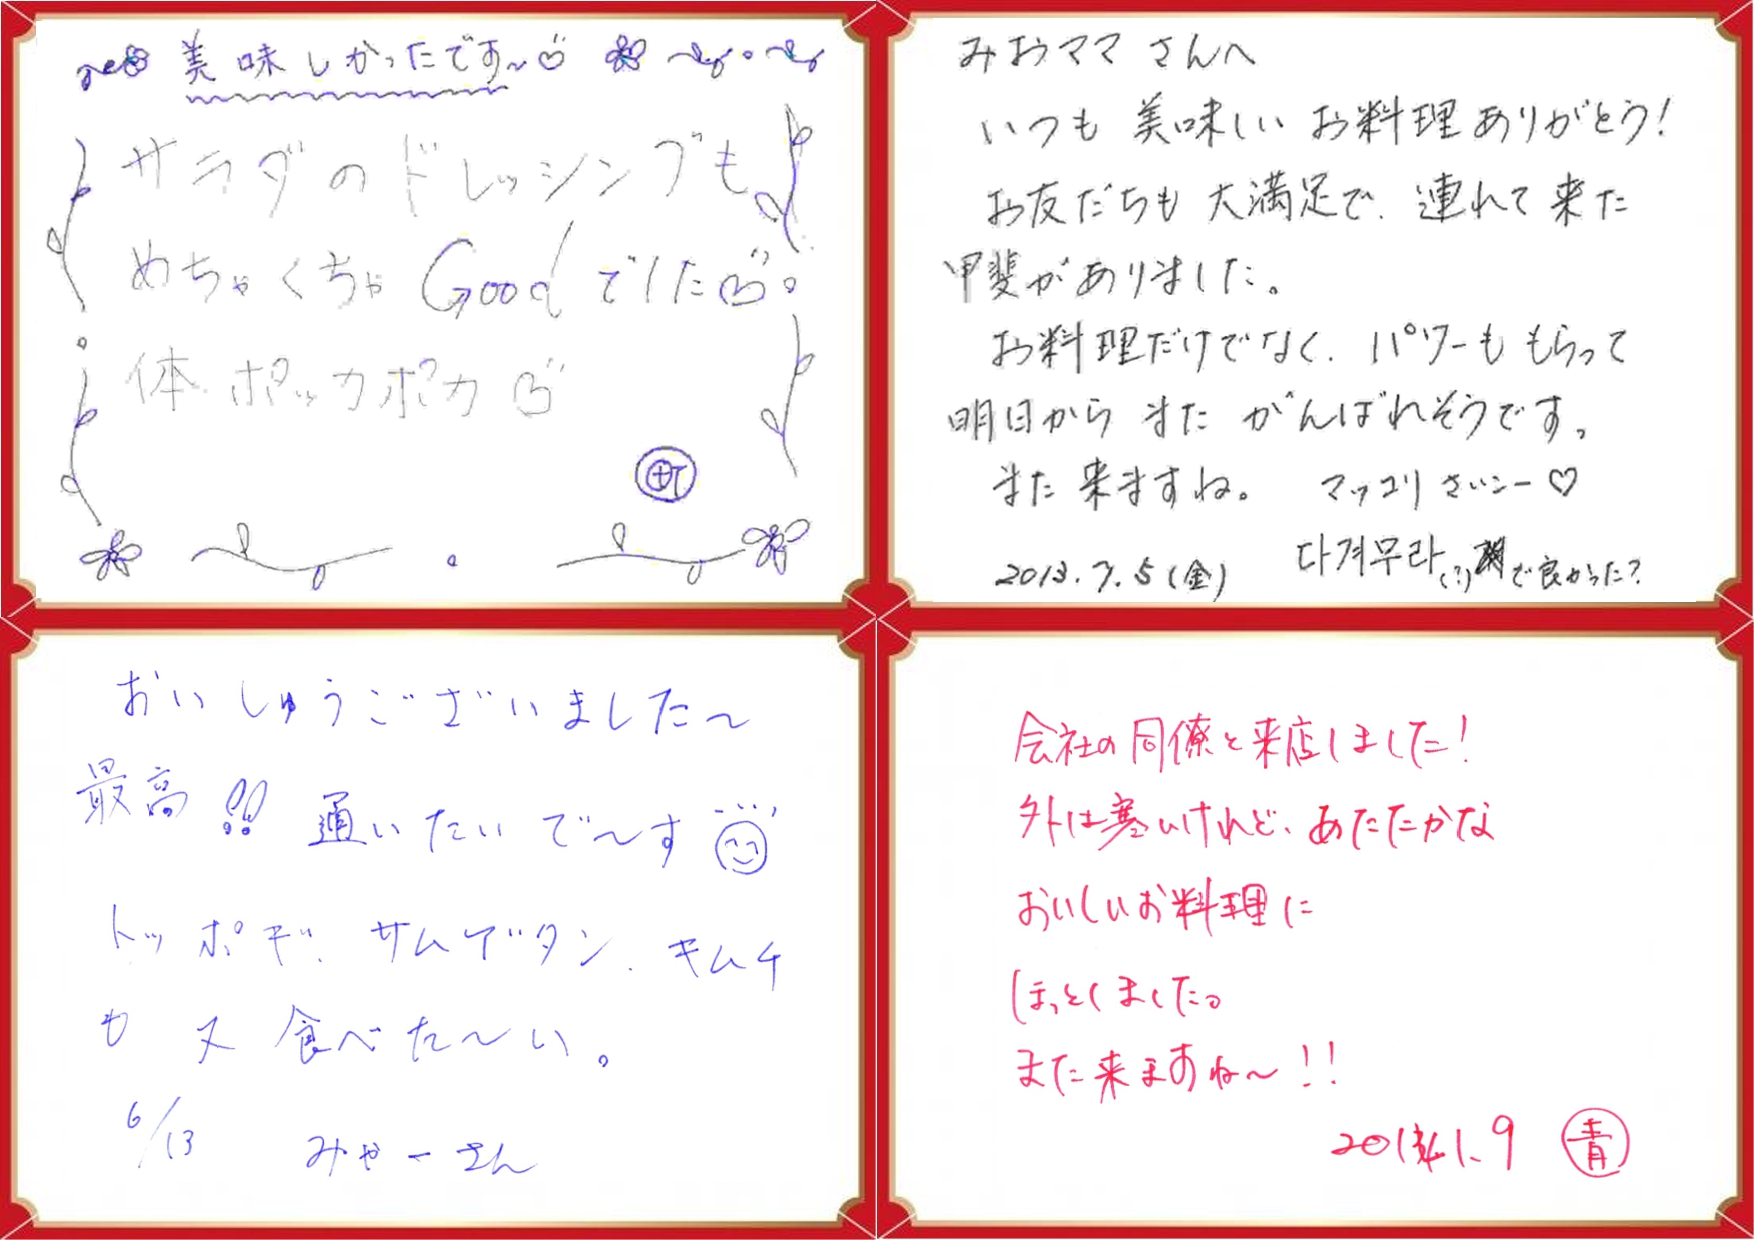 美味しかったです〜♡
サラダのドレッシングも
めちゃくちゃGoodでした♡。
体ポッカポカ♡
町
みおママさんへ
いつも美味しいお料理ありがとう!
お友だちも大満足で、連れて来た
甲斐がありました。
お料理だけでなく、パワーももらって
明日からまたがんばれそうです。
また来ますね。 マッコリさいこー♡
2013.7.5(金) 다케무라(?)で良かった?
おいしゅうございました〜
最高!! 通いたいで〜す
トッポギ、サムゲタン、キムチ
も又食べた〜い。
6/13 みやーさん
会社の同僚と来店しました!
外は寒いけれど、あたたかな
おいしいお料理に
ほっとしました。
また来ますね〜!!
2014.1.9 青